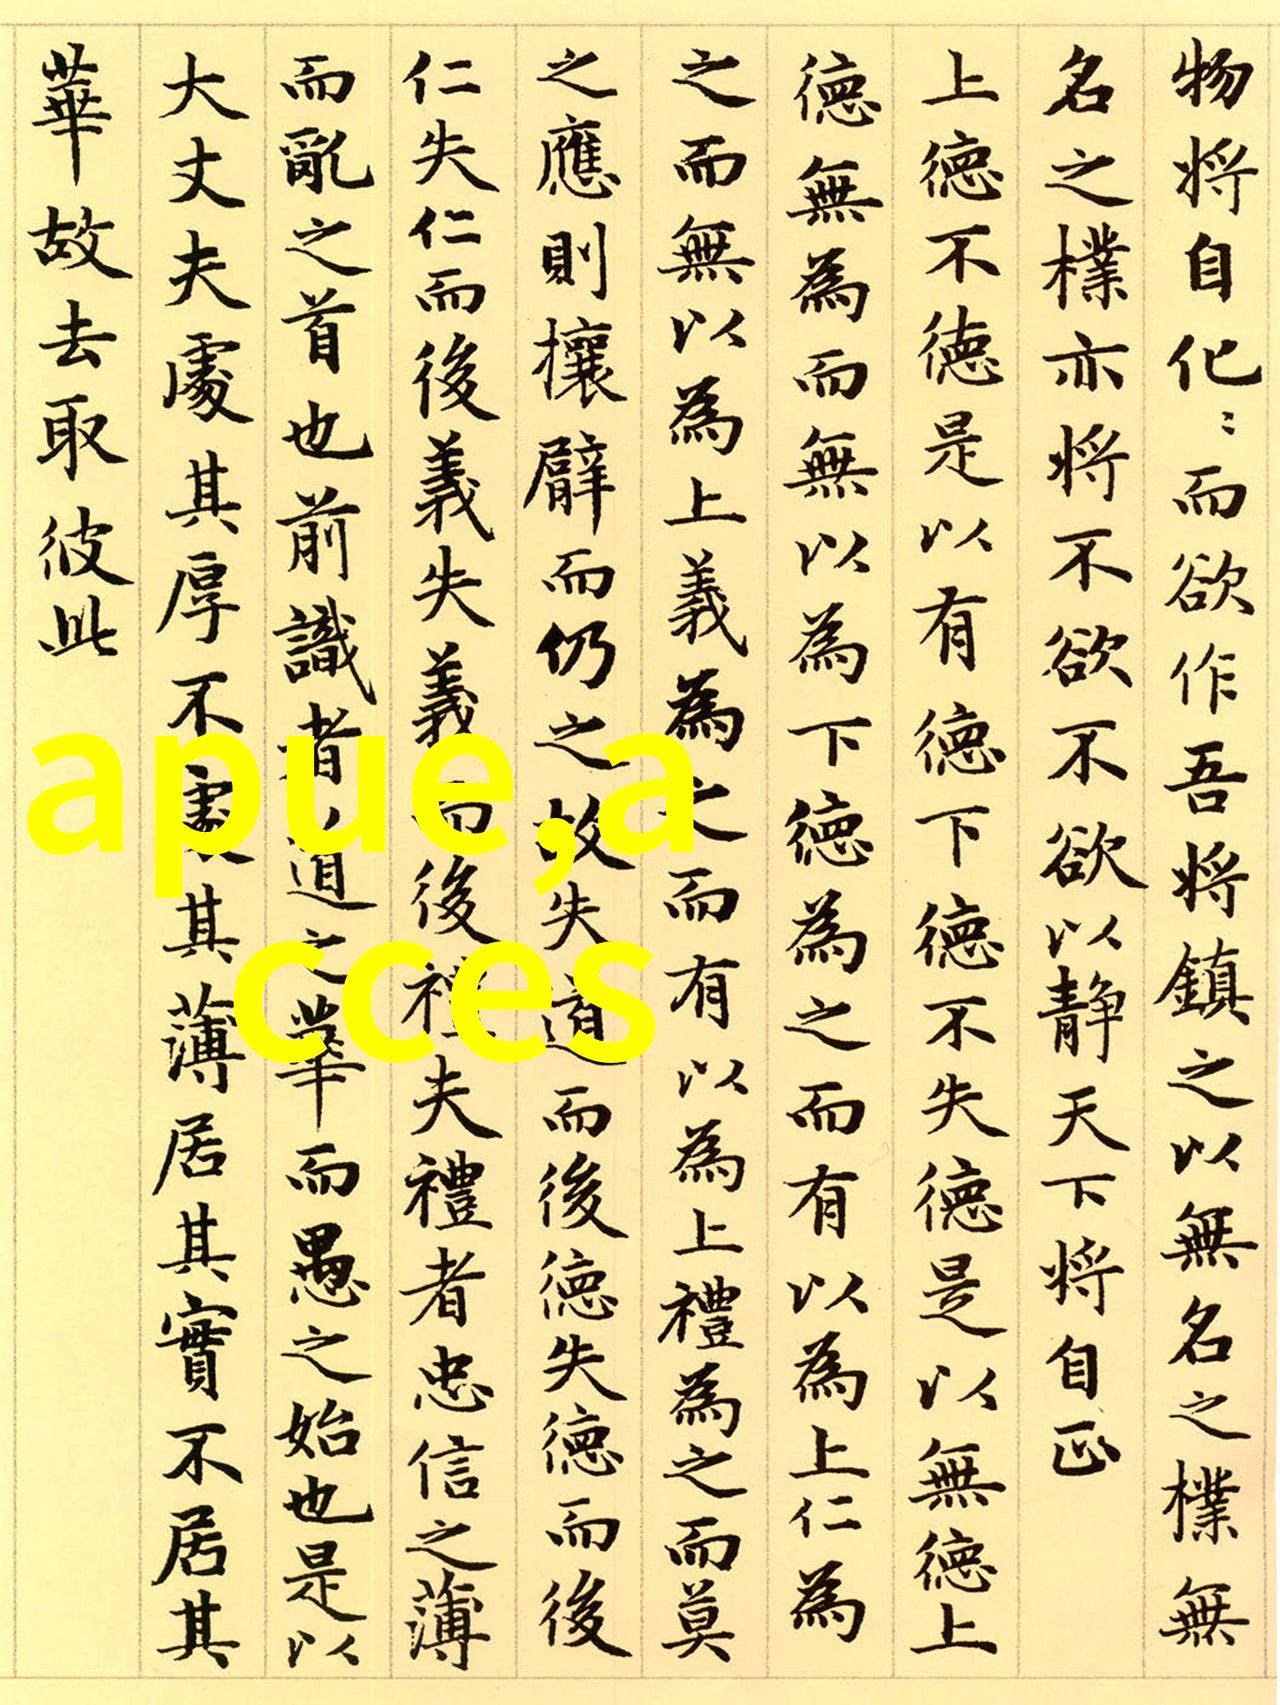 物将自化〻而欲作吾将鎮之以無名之樸無
名之樸亦将不欲不欲以静天下将自正
上德不德是以有德下德不失德是以無德上
德無為而無以為下德為之而有以為上仁為
之而無以為上義為之而有以為上禮為之而莫
之應則攘臂而仍之故失道而後德失德而後
仁失仁而後義失義而後禮夫禮者忠信之薄
而亂之首也前識者道之華而愚之始也是以
大丈夫處其厚不處其薄居其實不居其
華故去取彼此
apue,a
cces